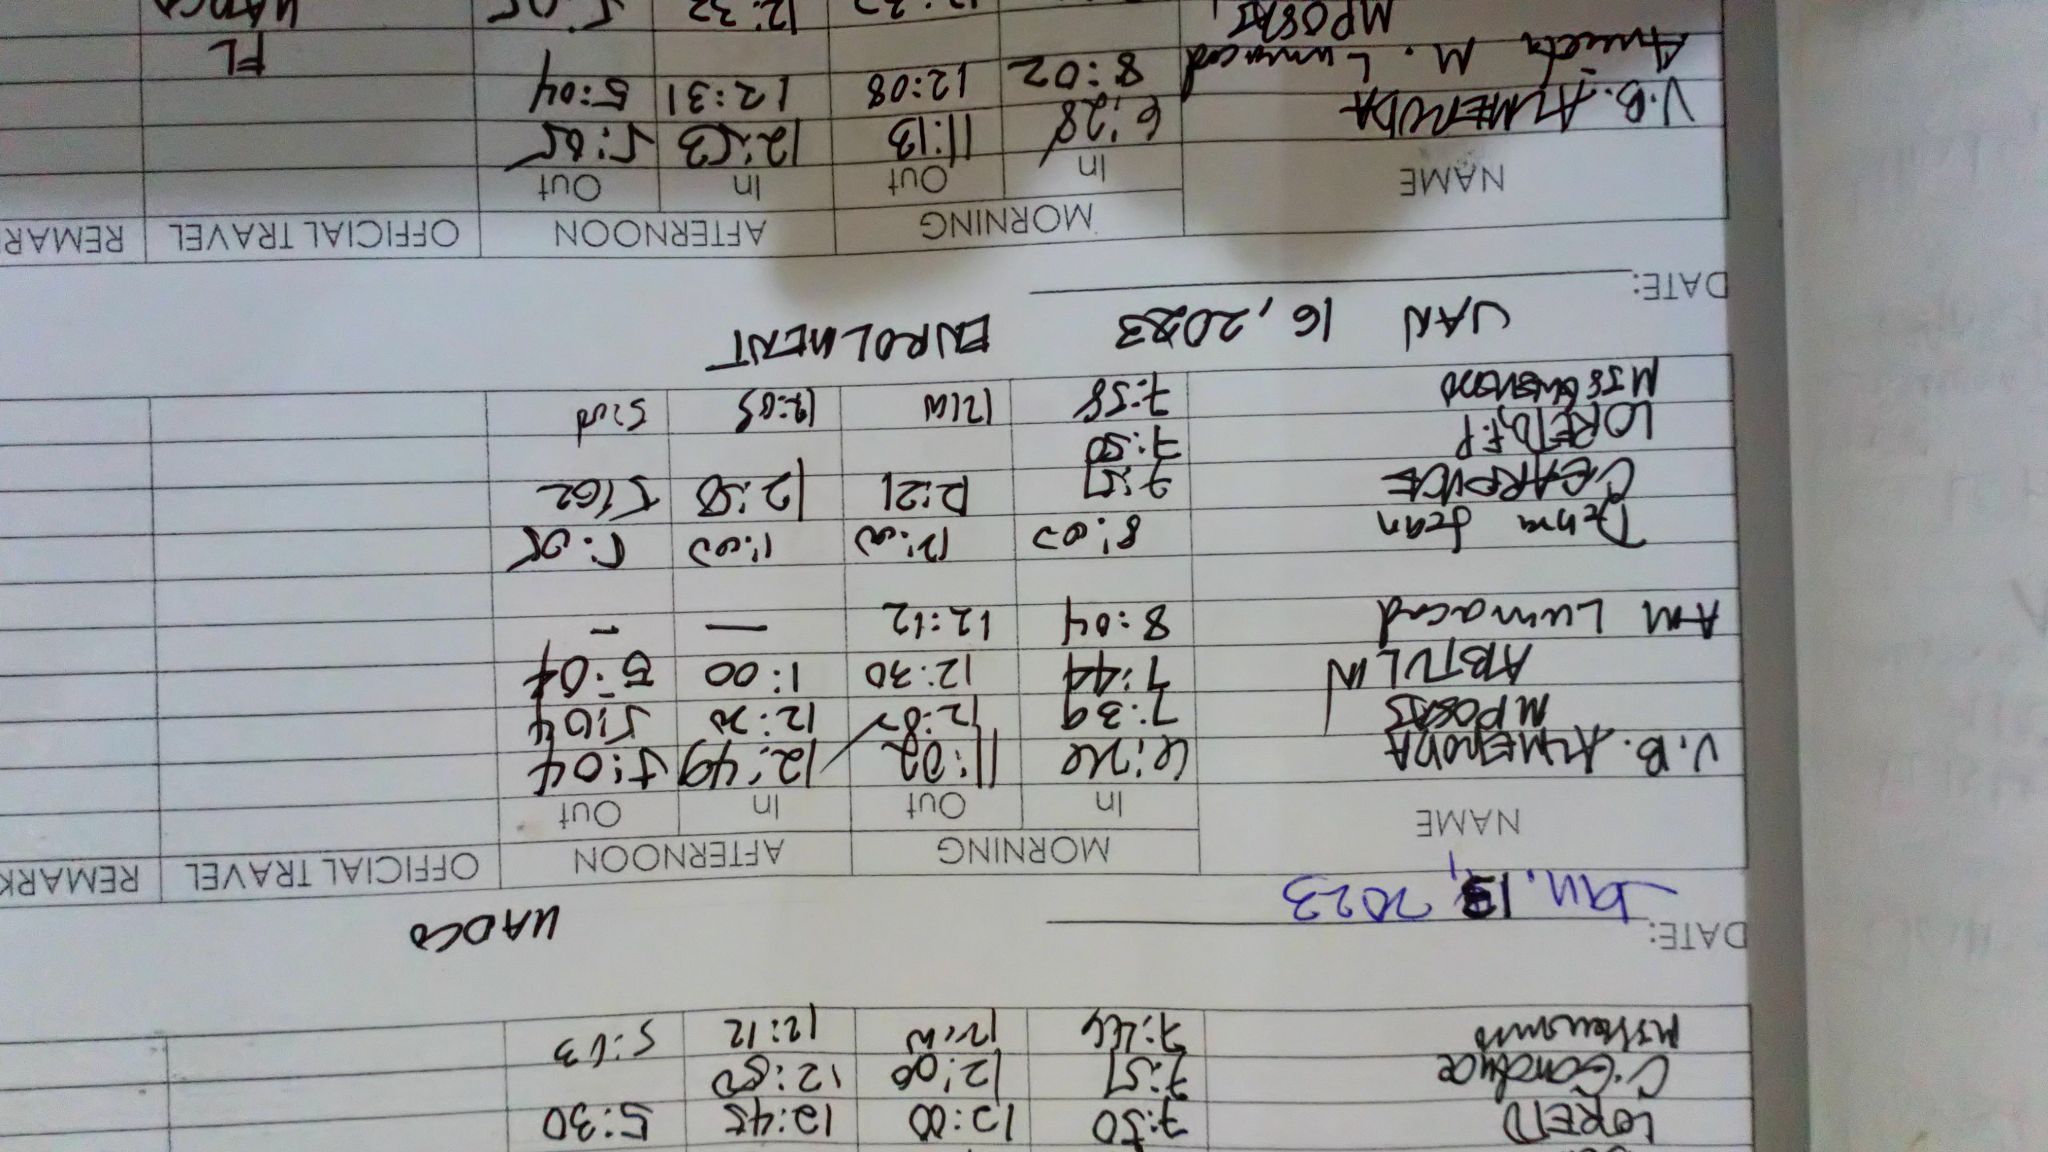 LORETO 7:50 12:00 12:45 5:30
7:57 12:00 12:50
7:44 12:12 5:03
UADCO
DATE: Jan. 13, 2023
NAME MORNING AFTERNOON OFFICIAL TRAVEL REMARK
In Out In Out
V.B. ALMERODA 11:02 12:49 5:04
MPOSAS 7:39 12:20 5:04
ABTULIN 7:44 12:30 1:00 5:04
AM Lumacad 8:04 12:12 — -
Jean 8:00 12:00 1:00 5:05
C.EARDUCE 7:57 12:21 12:58 5:02
LORETO, F.P 7:50
7:58 12:05
JAN 16, 2023 ENROLMENT
DATE:
NAME MORNING AFTERNOON OFFICIAL TRAVEL REMAR
In Out In Out
V.B. ALMERODA 6:28 11:13 12:53 5:05
M. Lumacad 8:02 12:08 12:31 5:04 FL
MPOSAS 12:32 5:05 UADCO